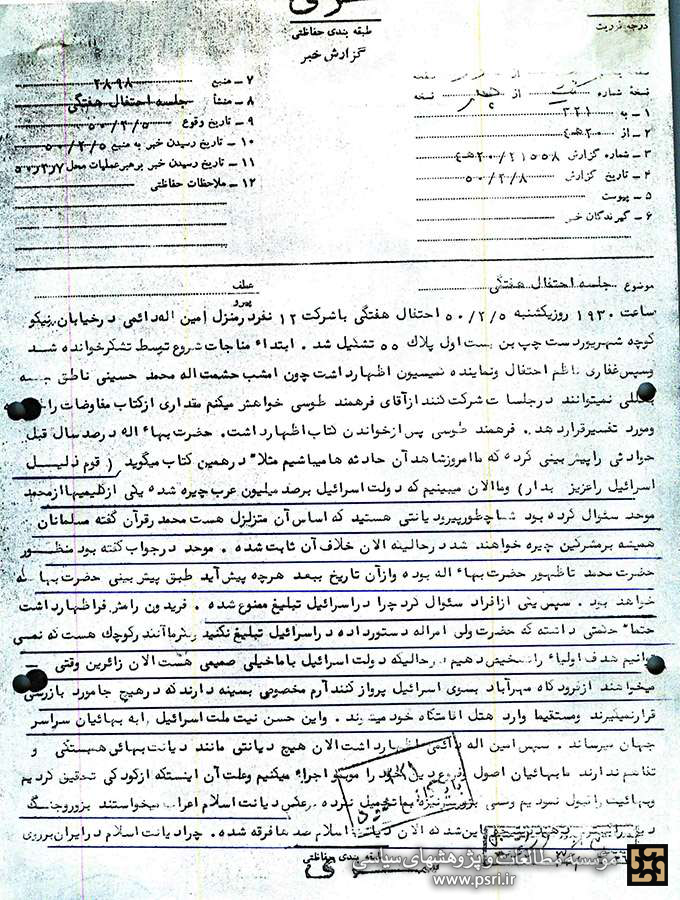 طبقه بندی حفاظتی
گزارش خبر
نسخه شماره از نسخه
۱ – به ۳۲۱
۲ – از ۲۰ه‍۴
۳ – شماره گزارش ۲۰/۲۱۵۵۸ه‍۴
۴ – تاریخ گزارش ۵۰/۲/۸
۵ – پیوست
۶ – گیرندگان خبر
۷ – منبع ۲۸۹۸
۸ – منشأ جلسه احتفال هفتگی
۹ – تاریخ وقوع ۵۰/۲/۵
۱۰ – تاریخ رسیدن خبر به منبع ۵۰/۲/۵
۱۱ – تاریخ رسیدن خبر برهبر عملیات محل ۵۰/۲/۷
۱۲ – ملاحظات حفاظتی
موضوع جلسه احتفال هفتگی
عطف
پیرو
ساعت ۱۹۳۰ روز یکشنبه ۵۰/۲/۵ احتفال هفتگی با شرکت ۱۲ نفر در منزل امین اله دائمی در خیابان نیکو
کوچه شهریور دست چپ بن بست اول پلاک ۵۵ تشکیل شد . ابتداء مناجات شروع توسط تشکر خوانده شد
وسپس غفاری ناظم احتفال ونماینده کمیسیون اظهار داشت چون امشب حشمت اله محمد حسینی ناطق جلسه
نمیتوانند در جلسات شرکت کنند از آقای فرهمند طوسی خواهش میکنم مقداری از کتاب مفاوضات را
ومورد تفسیر قرار دهد . فرهمند طوسی پس از خواندن کتاب اظهار داشت . حضرت بهاء اله در صد سال قبل
حوادثی را پیش بینی کرده که ما امروز شاهد آن حادثه ها میباشیم مثلا" در همین کتاب میگوید ( قوم ذلیل
اسرائیل را عزیز بدار) وما الان میبینیم که دولت اسرائیل بر صد میلیون عرب چیره شده یکی از کلیمیها از محمد
موحد سئوال کرده بود شما چطور پیرو دیانتی هستید که اساس آن متزلزل هست محمد در قرآن گفته مسلمانان
همیشه بر مشرکین چیره خواهند شد در حالیکه الان خلاف آن ثابت شده . موحد در جواب گفته بود منظور
حضرت محمد تا ظهور حضرت بهاء اله بوده واز آن تاریخ ببعد هرچه پیش آید طبق پیش بینی حضرت بهاء اله
خواهد بود . سپس یکی از افراد سئوال کرد چرا در اسرائیل تبلیغ ممنوع شده . فریدون رامش فر اظهار داشت
حتما" حکمتی داشته که حضرت ولی امراله دستور داده در اسرائیل تبلیغ نکنید وفکر ما آنقدر کوچک هست که نمی
توانیم هدف اولیاء را تشخیص دهیم در حالیکه دولت اسرائیل با ما خیلی صمیمی هست الان زائرین وقتی
میخواهند از فرودگاه مهرآباد بسوی اسرائیل پرواز کنند آرم مخصوصی بسینه دارند که در هیچ جا مورد بازرسی
قرار نمیگیرند ومستقیما وارد هتل اقامتگاه خود میشوند . واین حسن نیت ملت اسرائیل را به بهائیان سراسر
جهان میرساند . سپس امین اله دائمی اظهار داشت الان هیچ دیانتی مانند دیانت بهائی همبستگی و
تفاهم ندارند ما بهائیان اصول وفروع دین خود را موبمو اجراء میکنیم وعلت آن اینستکه از کودکی تحقیق کردیم
وبهائیت را قبول نمودیم وکسی بزور سرنیزه بما تحمیل نکرده برعکس دیانت اسلام اعراب میخواستند بزور وجنگ
دین را این شد که الان دیانت اسلام صدها فرقه شده . چرا دیانت اسلام در ایران بر روی
طبقه بندی حفاظتی
مؤسسه مطالعات و پژوهشهای سیاسی
www.psri.ir